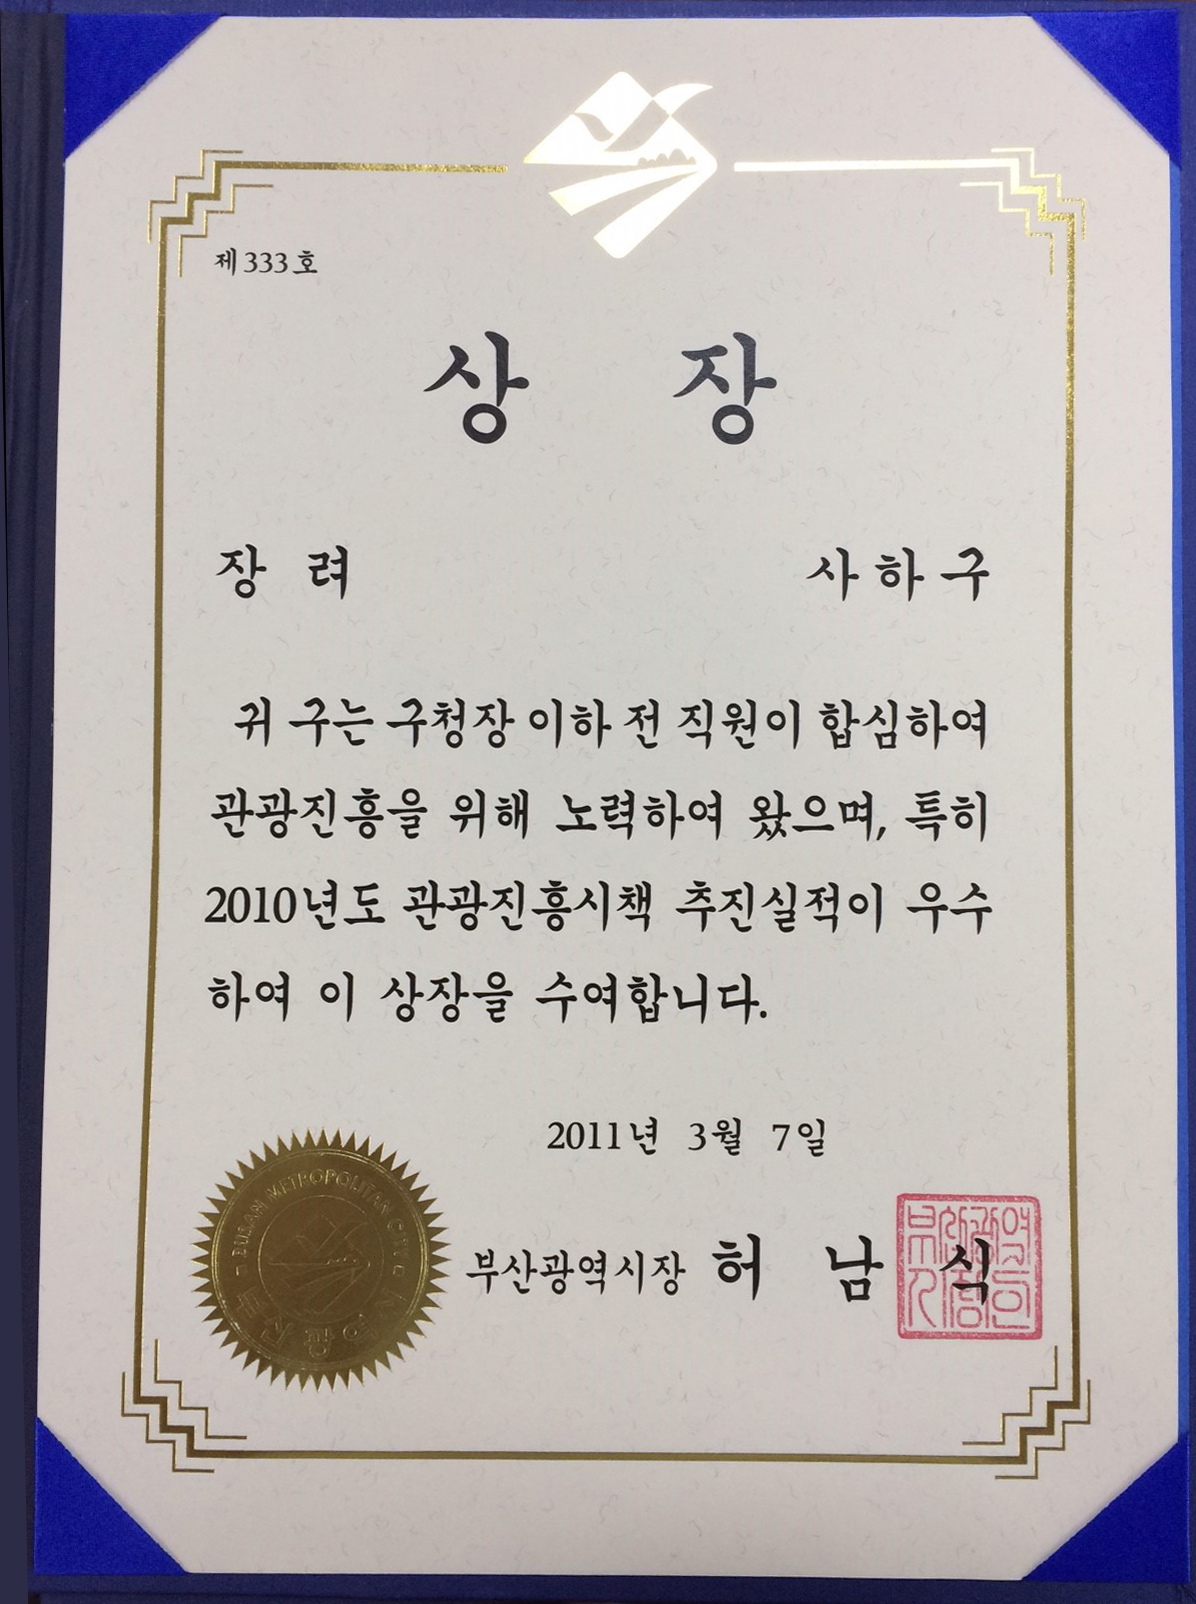 제333호
상 장
장 려 사하구
귀 구는 구청장 이하 전 직원이 합심하여
관광진흥을 위해 노력하여 왔으며, 특히
2010년도 관광진흥시책 추진실적이 우수
하여 이 상장을 수여합니다.
2011년 3월 7일
BUSAN METROPOLITAN CITY
부산광역시장 허 남 식